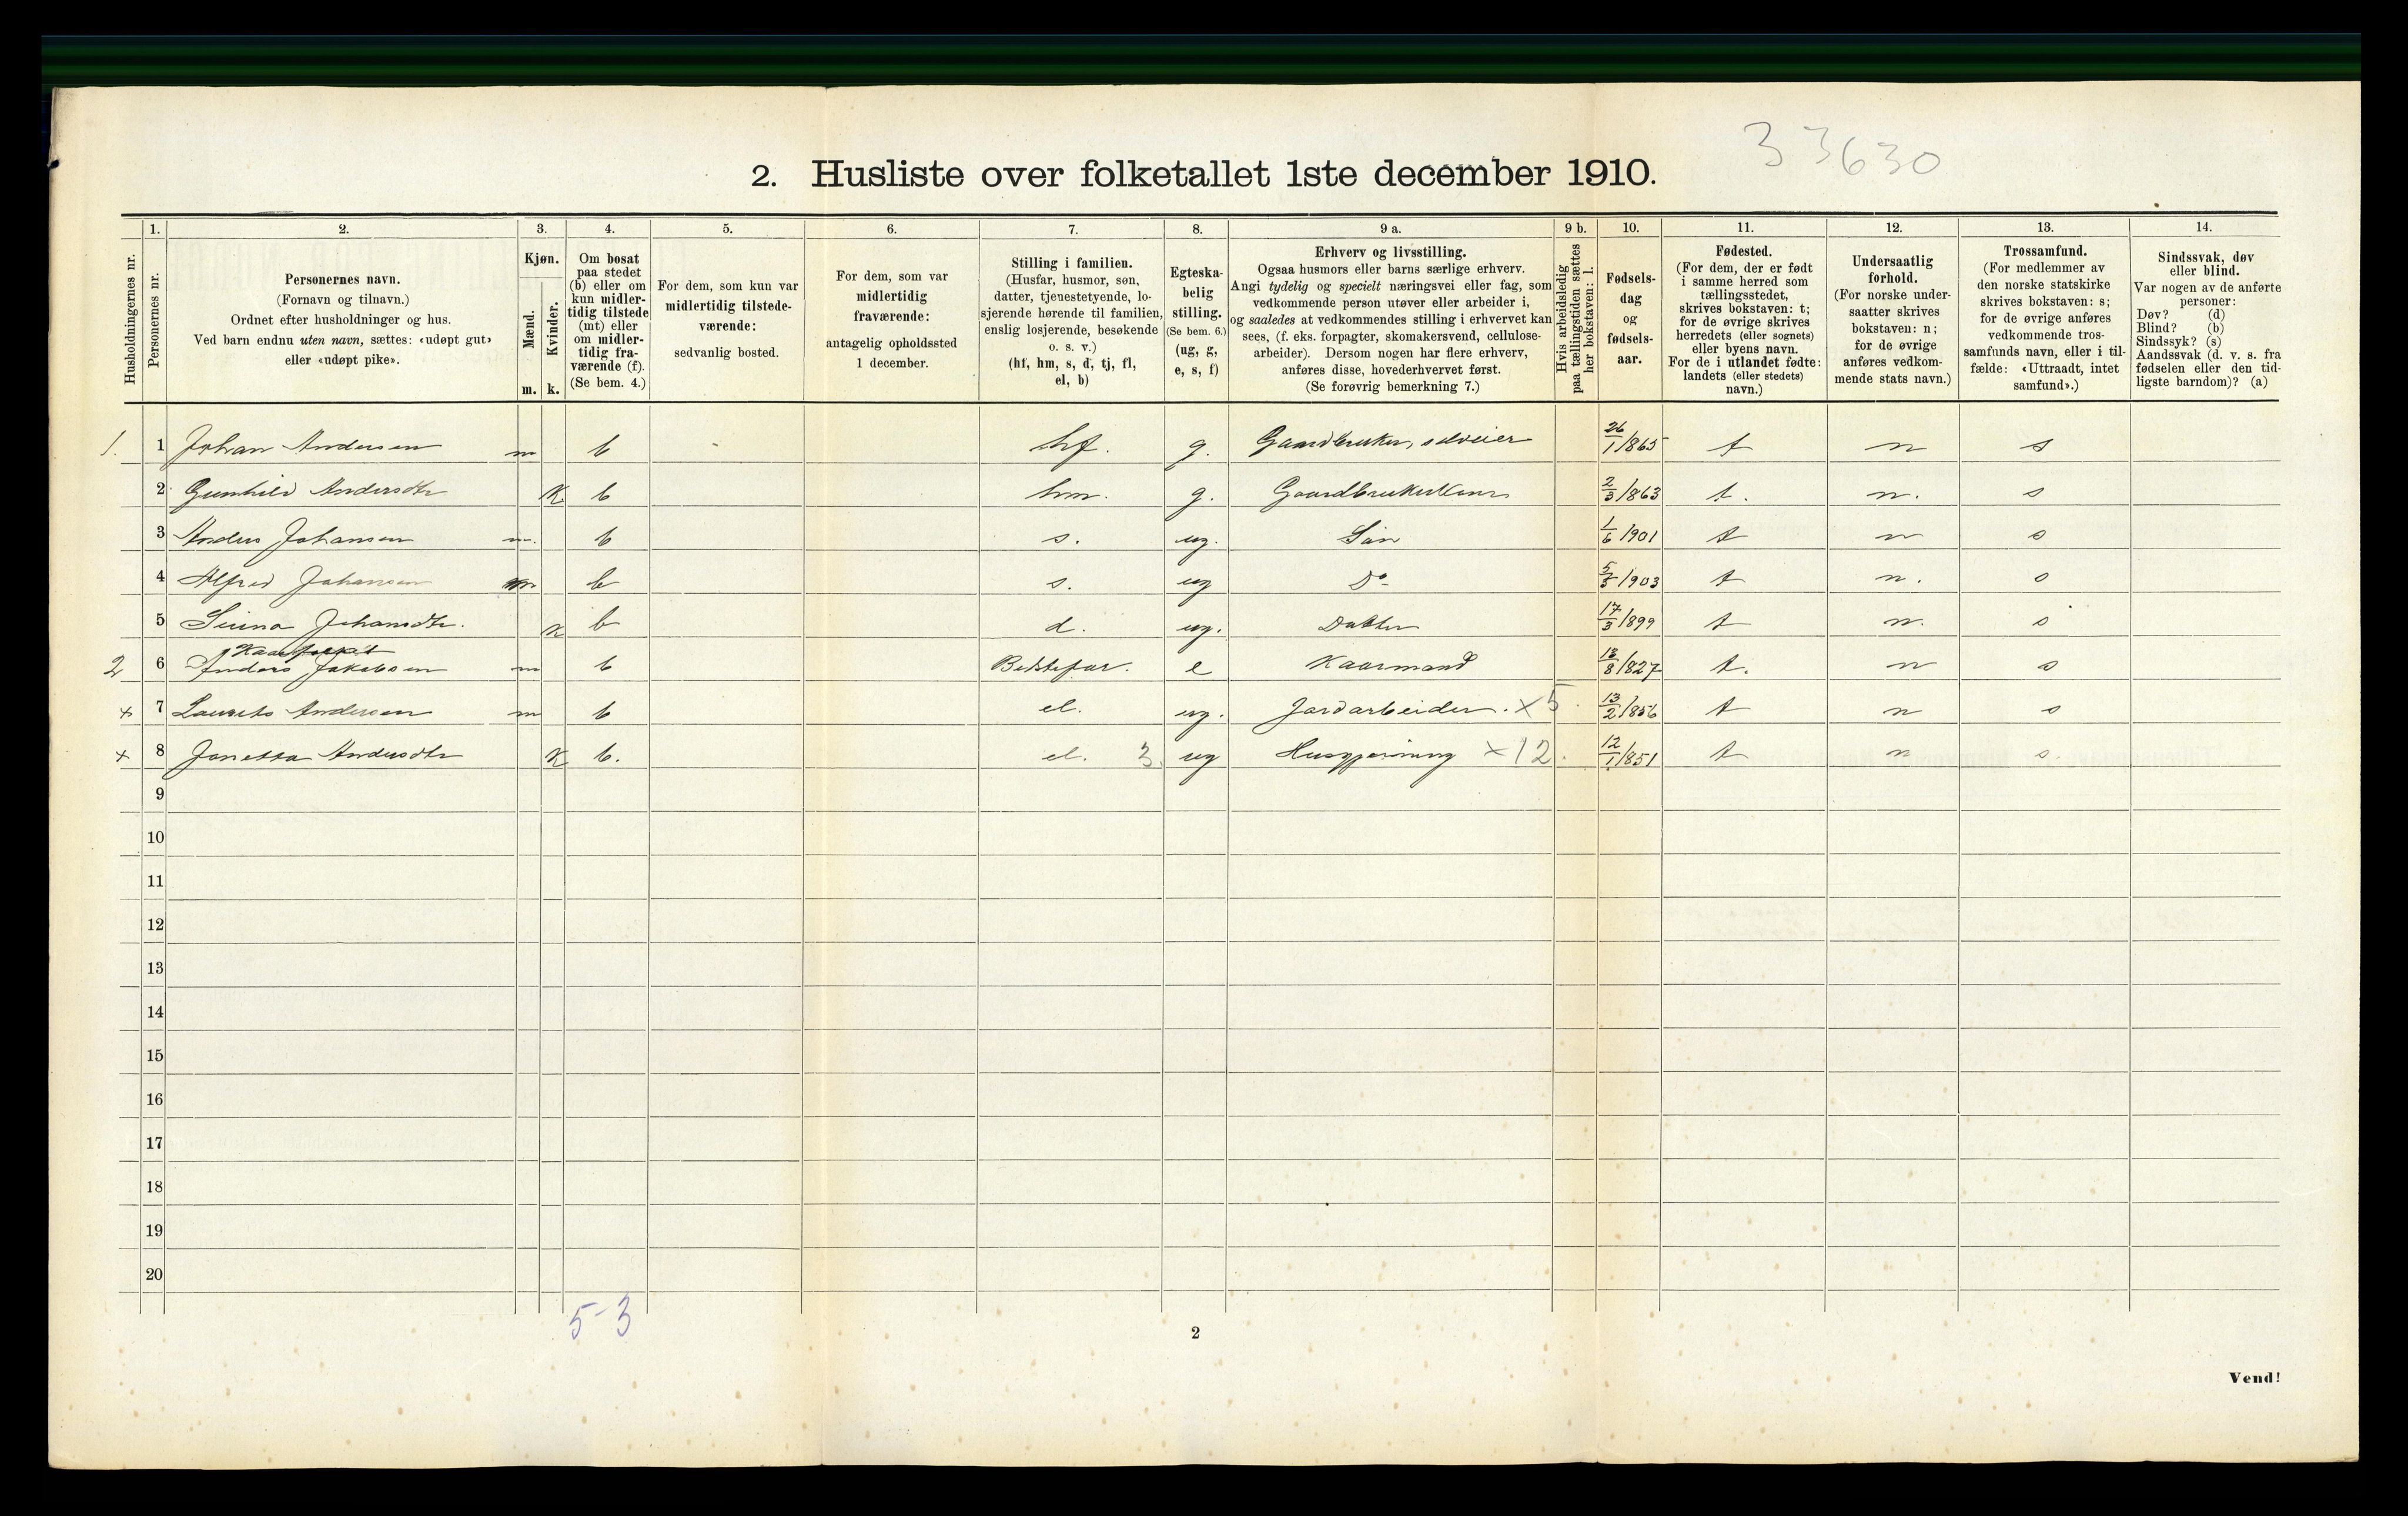 33630
2. Husliste over folketallet 1ste december 1910.
Husholdningernes nr.
1. Personernes nr.
2. Personernes navn.
(Fornavn og tilnavn.)
Ordnet efter husholdninger og hus.
Ved barn endnu uten navn, sættes: «udøpt gut»
eller «udøpt pike».
3. Kjøn.
Mænd. m.
Kvinder. k.
4. Om bosat
paa stedet
(b) eller om
kun midler-
tidig tilstede
(mt) eller
om midler-
tidig fra-
værende (f).
(Se bem. 4.)
5. For dem, som kun var
midlertidig tilstede-
værende:
sedvanlig bosted.
6. For dem, som var
midlertidig
fraværende:
antagelig opholdssted
1 december.
7. Stilling i familien.
(Husfar, husmor, søn,
datter, tjenestetyende, lo-
sjerende hørende til familien,
enslig losjerende, besøkende
o. s. v.)
(hf, hm, s, d, tj, fl,
el, b)
8. Egteska-
belig
stilling.
(Se bem. 6.)
(ug, g,
e, s, f)
9 a. Erhverv og livsstilling.
Ogsaa husmors eller barns særlige erhverv.
Angi tydelig og specielt næringsvei eller fag, som
vedkommende person utøver eller arbeider i,
og saaledes at vedkommendes stilling i erhvervet kan
sees, (f. eks. forpagter, skomakersvend, cellulose-
arbeider). Dersom nogen har flere erhverv,
anføres disse, hovederhvervet først.
(Se forøvrig bemerkning 7.)
9 b. Hvis arbeidsledig
paa tællingstiden sættes
her bokstaven: l.
10. Fødsels-
dag
og
fødsels-
aar.
11. Fødested.
(For dem, der er født
i samme herred som
tællingsstedet,
skrives bokstaven: t;
for de øvrige skrives
herredets (eller sognets)
eller byens navn.
For de i utlandet fødte:
landets (eller stedets)
navn.)
12. Undersaatlig
forhold.
(For norske under-
saatter skrives
bokstaven: n;
for de øvrige
anføres vedkom-
mende stats navn.)
13. Trossamfund.
(For medlemmer av
den norske statskirke
skrives bokstaven: s;
for de øvrige anføres
vedkommende tros-
samfunds navn, eller i til-
fælde: «Uttraadt, intet
samfund».)
14. Sindssvak, døv
eller blind.
Var nogen av de anførte
personer:
Døv? (d)
Blind? (b)
Sindssyk? (s)
Aandssvak (d. v. s. fra
fødselen eller den tid-
ligste barndom)? (a)
1. 1 Johan Andersen m b hf. g. Gaardbruker, selveier 26/1/865 t n s
2 Gunhild Andersdtr K b hm. g. Gaardbrukerkone 2/3/863 t. n. s
3 Anders Johansen m. b s. ug. Søn 1/6 1901 t n s
4 Alfred Johansen m b s. ug Do 5/5/1903 t n. s
5 Johansdtr. K b d. ug. Datter 17/3/1899 t n. s
Kaarfolket
2 6 Anders Jakobsen m b Bedstefar. e Kaarmand 13/8/827 t. n s
x 7 Laurits Andersen m b el. ug. Jordarbeider. x 5. 13/2/856 t n s
x 8 Janetta Andersdtr K b. el. 3. ug Husgjerning x 12. 12/1/851 t n s.
9
10
11
12
13
14
15
16
17
18
19
20
5-3
2
Vend!